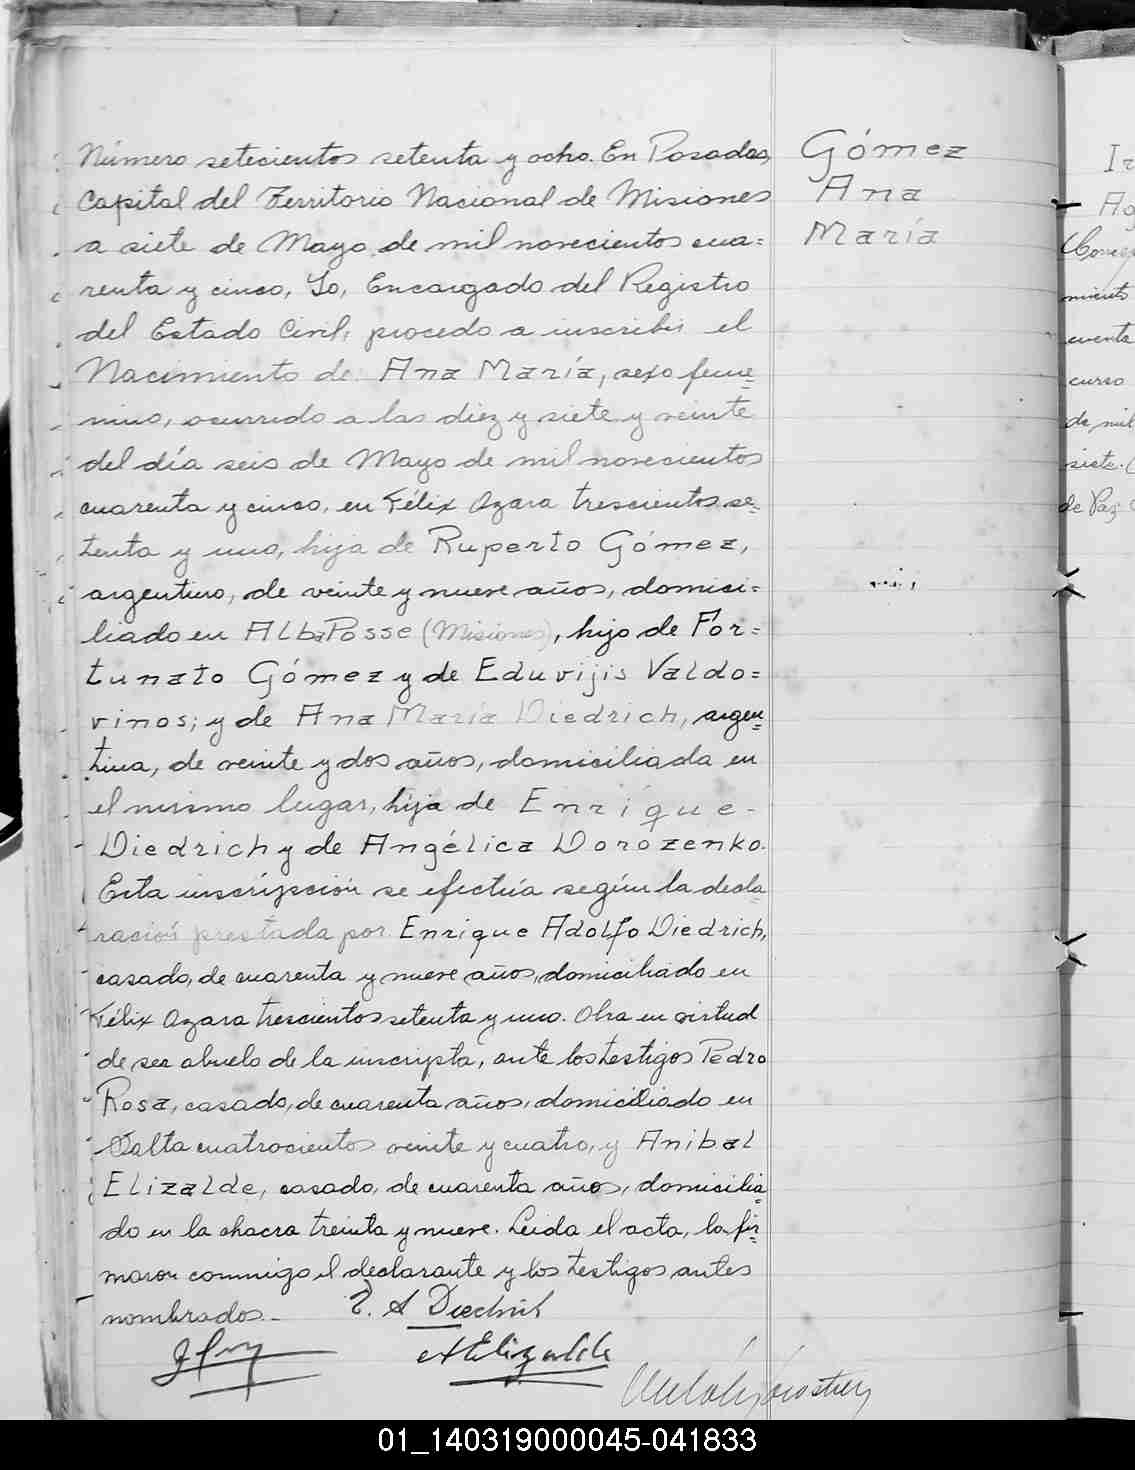 Número setecientos setenta y ocho. En Posadas,
Capital del Territorio Nacional de Misiones
a siete de Mayo de mil novecientos cua=
renta y cinco, Yo, Encargado del Registro
del Estado Civil, procedo a inscribir el
Nacimiento de Ana María, sexo feme=
nino, ocurrido a las diez y siete y veinte
del día seis de Mayo de mil novecientos
cuarenta y cinco, en Félix Azara trescientos se=
tenta y uno, hija de Ruperto Gómez,
argentino, de veinte y nueve años, domici=
liado en Alba Posse (Misiones), hijo de For=
tunato Gómez y de Eduvijis Valdo=
vinos; y de Ana María Diedrich, argen=
tina, de veinte y dos años, domiciliada en
el mismo lugar, hija de Enrique-
Diedrich y de Angélica Dorozenko.
Esta inscripción se efectúa según la decla
ración prestada por Enrique Adolfo Diedrich,
casado, de cuarenta y nueve años, domiciliado en
Félix Azara trescientos setenta y uno. Obra en virtud
de ser abuelo de la inscripta, ante los testigos Pedro
Rosa, casado, de cuarenta años, domiciliado en
Salta cuatrocientos veinte y cuatro, y Anibal
Elizalde, casado, de cuarenta años, domicilia=
do en la chacra treinta y nueve. Leida el acta, la fir=
maron conmigo el declarante y los testigos antes
nombrados.-
E. A Diedrich
AElizalde
Gómez
Ana
María
Ag
miento
cuenta
curso
de mil
siete.
de Paz
01_140319000045-041833